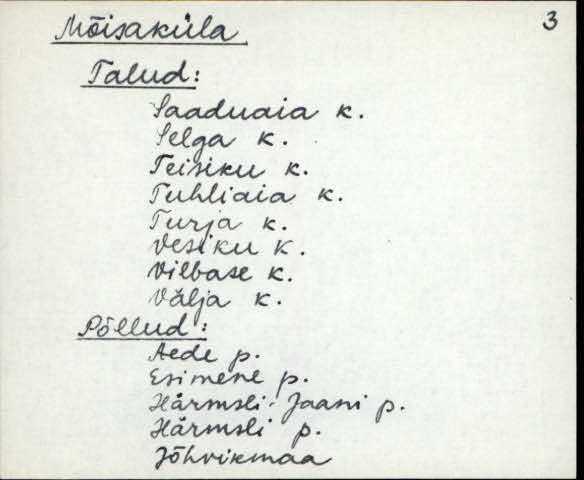 3
Mõisaküla
Talud:
Saaduaia k.
Selga k.
Teisiku k.
Tuhliaia k.
Turja k.
Vesiku k.
Vilbase k.
Välja k.
Põllud:
Aede p.
Esimene p.
Härmsli-Jaani p.
Härmsli p.
Jõhvikmaa